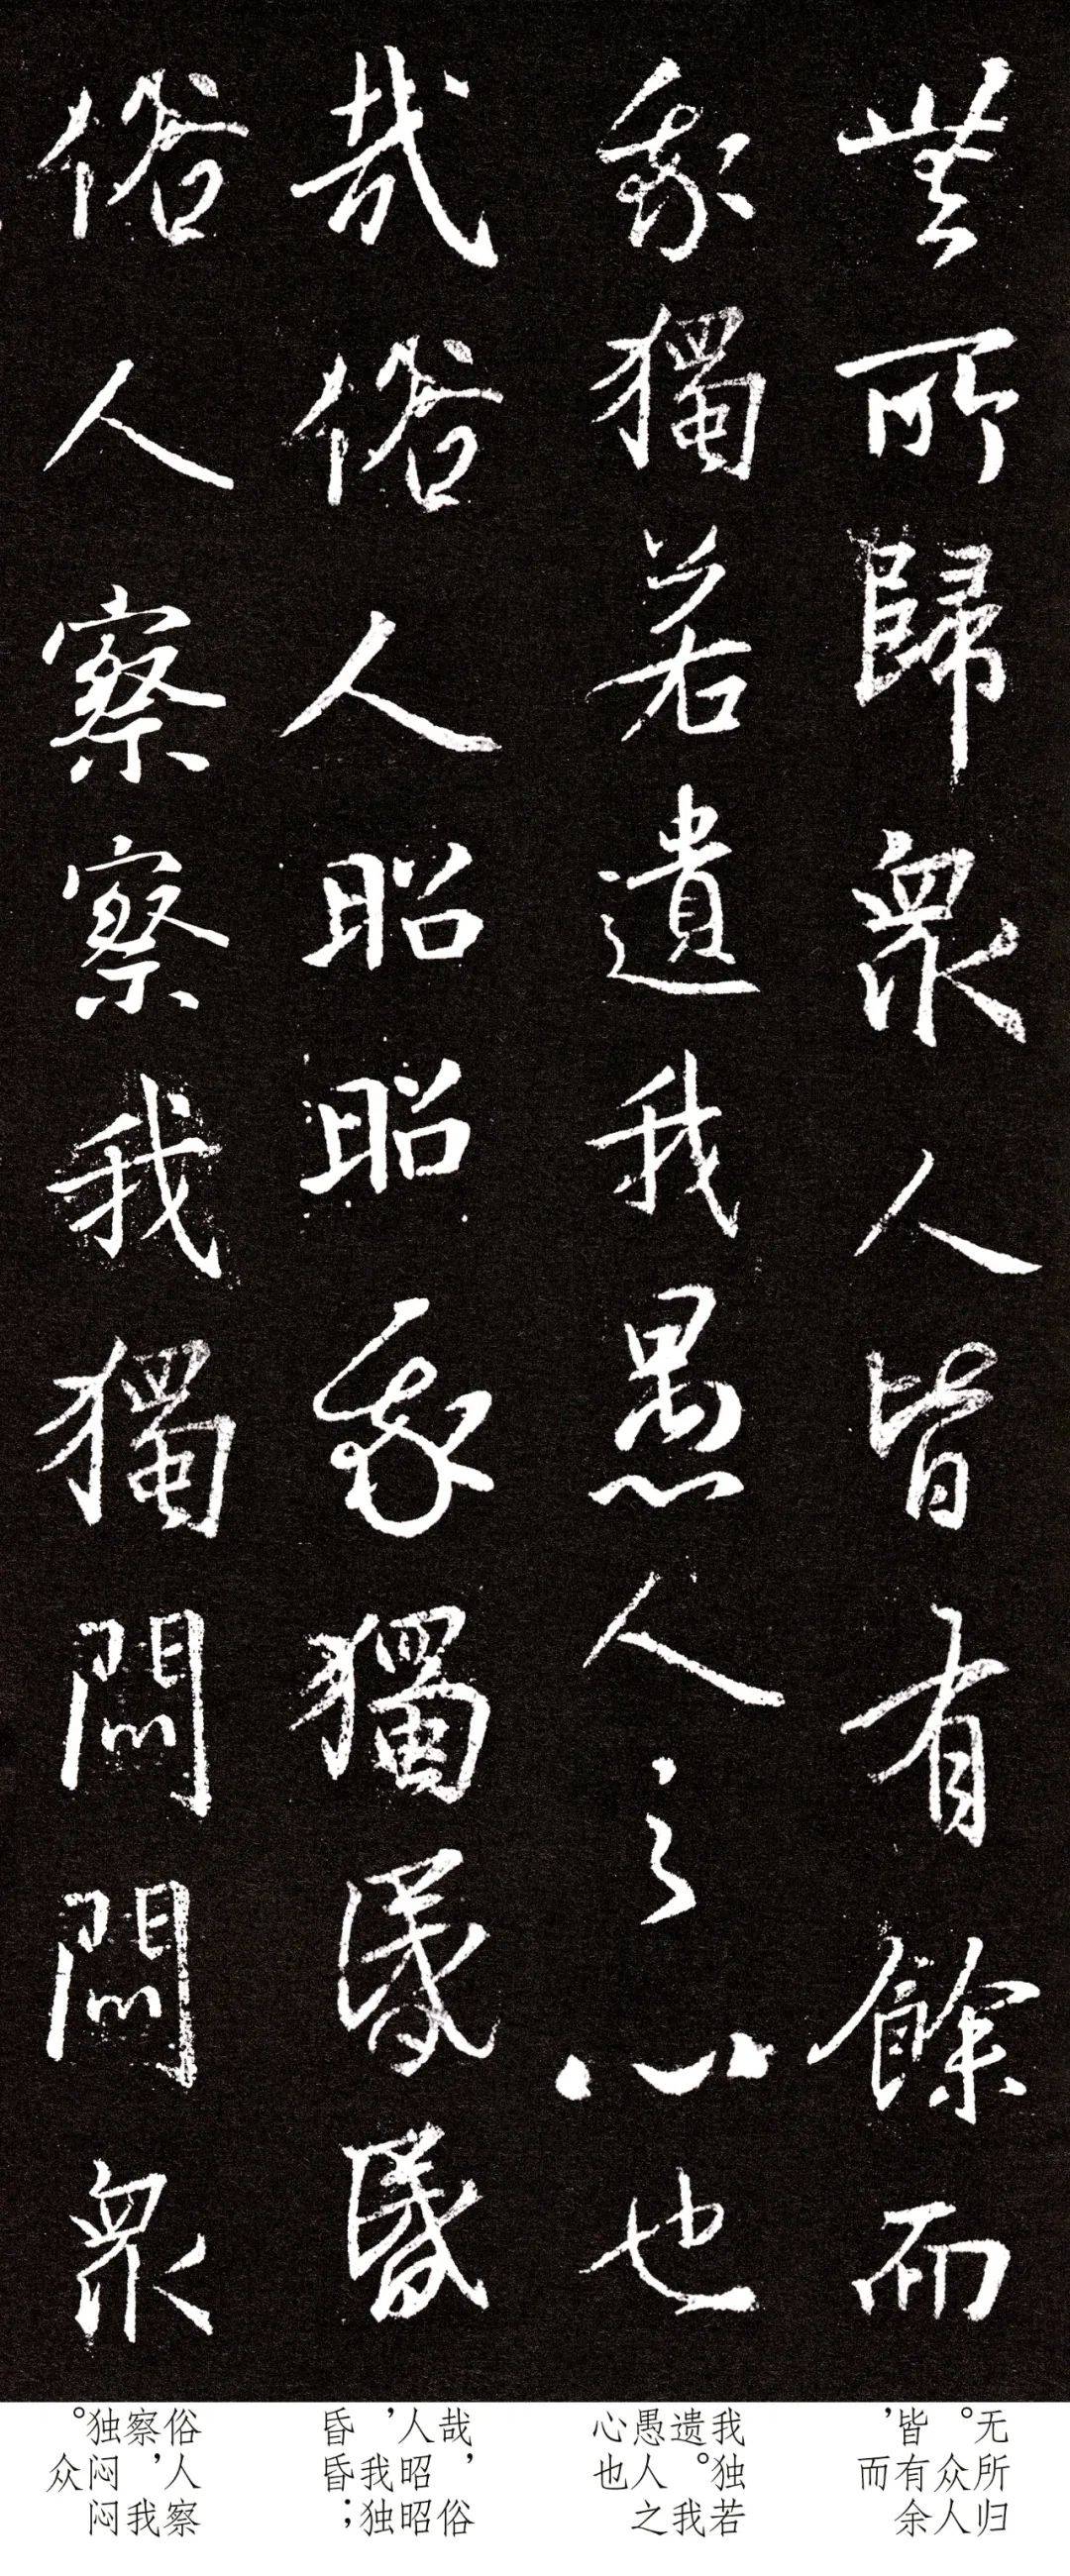 無所歸衆人皆有餘而
我獨若遺我愚人之心也
哉俗人昭昭我獨昬昬
俗人察察我獨悶悶衆
无所归
。众人
皆有余
，而
我独若
遗。我
愚人之
心也
哉，俗
人昭昭
，我独
昏昏；
俗人察
察，我
独闷闷
。众